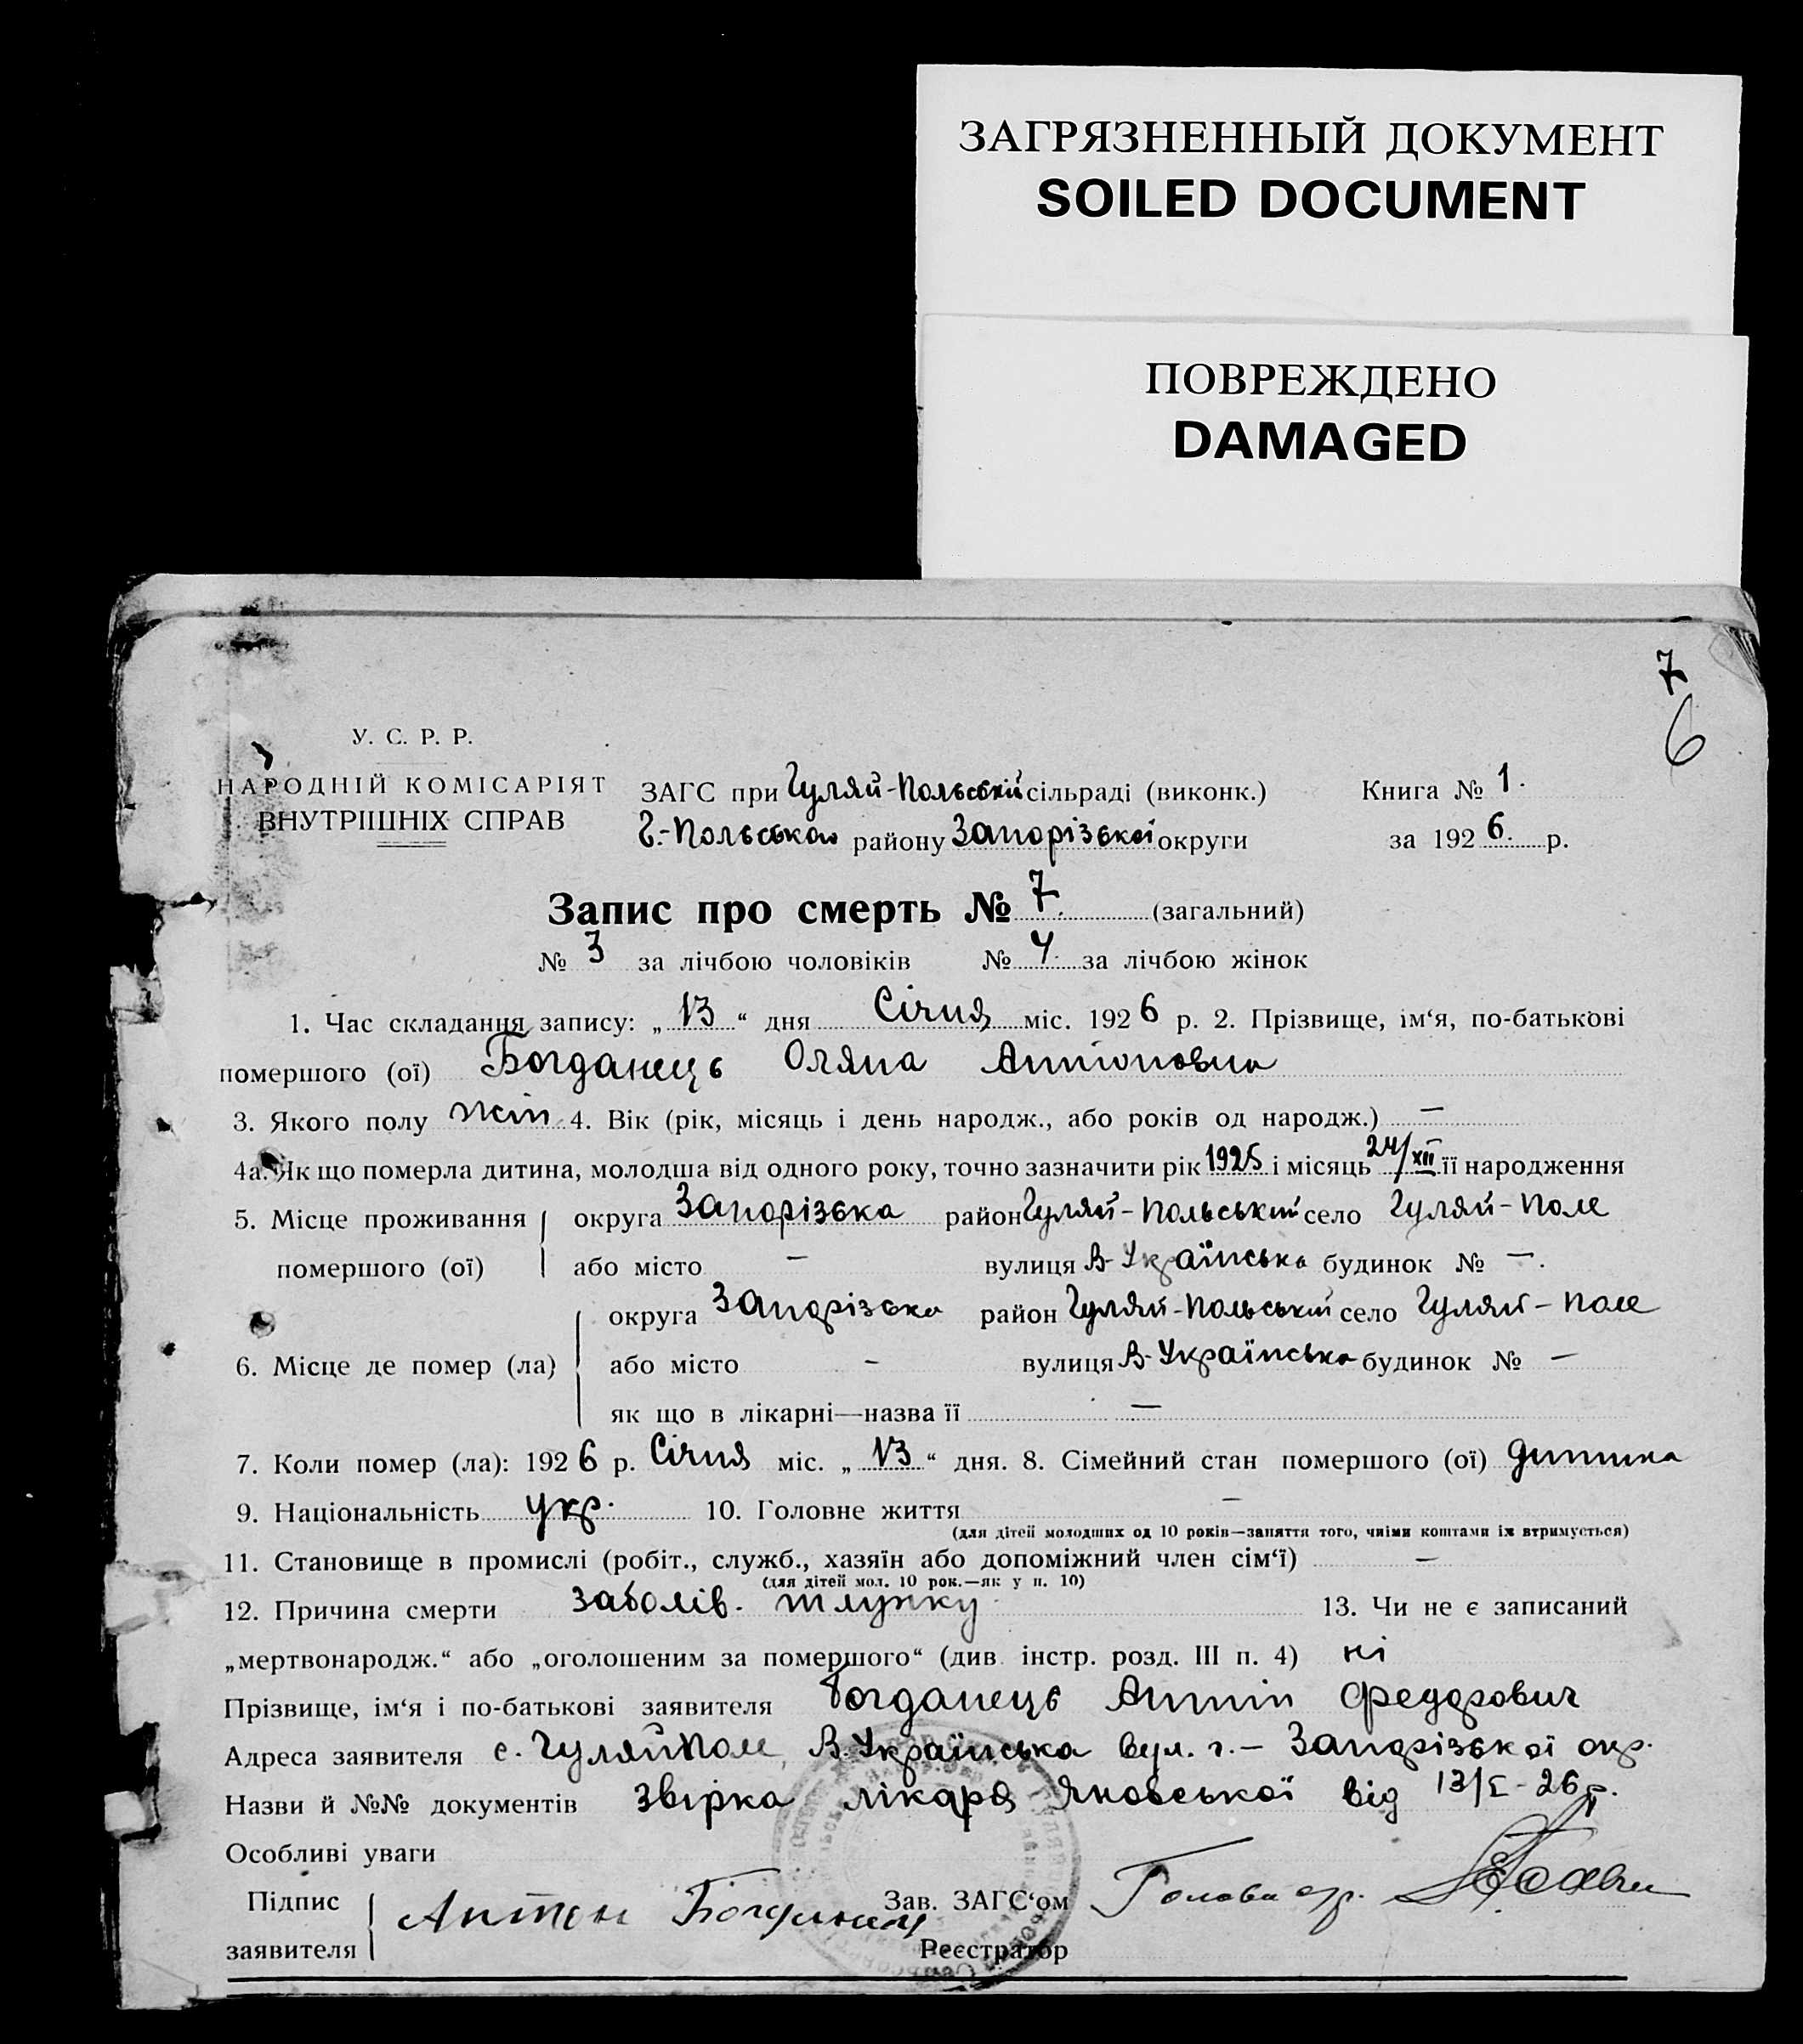 ЗАГРЯЗНЕННЫЙ ДОКУМЕНТ
SOILED DOCUMENT
ПОВРЕЖДЕНО
DAMAGED
7
6
У. С. Р. Р.
НАРОДНІЙ КОМІСАРІЯТ
ВНУТРІШНІХ СПРАВ
ЗАГС при Гуляй-Польській сільраді (виконк.) Книга № 1.
Г.-Польського району Запорізької округи за 1926. р.
Запис про смерть № 7. (загальний)
№ 3 за лічбою чоловіків № 4. за лічбою жінок
1. Час складання запису: „13“ дня Січня міс. 1926 р. 2. Прізвище, ім'я, по-батькові
помершого (ої) Богданець Оляна Антоновна
3. Якого полу жін. 4. Вік (рік, місяць і день народж., або років од народж.) —
4а. Як що померла дитина, молодша від одного року, точно зазначити рік 1925 і місяць 24/XII її народження
5. Місце проживання округа Запорізька район Гуляй-Польський село Гуляй-Поле
помершого (ої) або місто — вулиця В-Українська будинок № —.
округа Запорізька район Гуляй-Польський село Гуляй-Поле
6. Місце де помер (ла) або місто - вулиця В-Українська будинок № —
як що в лікарні—назва її —
7. Коли помер (ла): 1926 р. Січня міс. „13“ дня. 8. Сімейний стан помершого (ої) дитина
9. Національність укр. 10. Головне життя —
(для дітей молодших од 10 років—заняття того, чиїми коштами їх втримується)
11. Становище в промислі (робіт., служб., хазяїн або допоміжний член сім'ї) —
(для дітей мол. 10 рок.—як у п. 10)
12. Причина смерти заболів. шлунку. 13. Чи не є записаний
„мертвонародж.“ або „оголошеним за помершого“ (див. інстр. розд. III п. 4) ні
Прізвище, ім'я і по-батькові заявителя Богданець Антін Федорович
Адреса заявителя с. Гуляйполе, В.Українська вул. г.- Запорізької окр.
Назви й №№ документів звірка лікаря Яновської від 13/I-26 р.
Особливі уваги
Підпис заявителя Антон Богданец
Зав. ЗАГС'ом Голова
Реєстратор